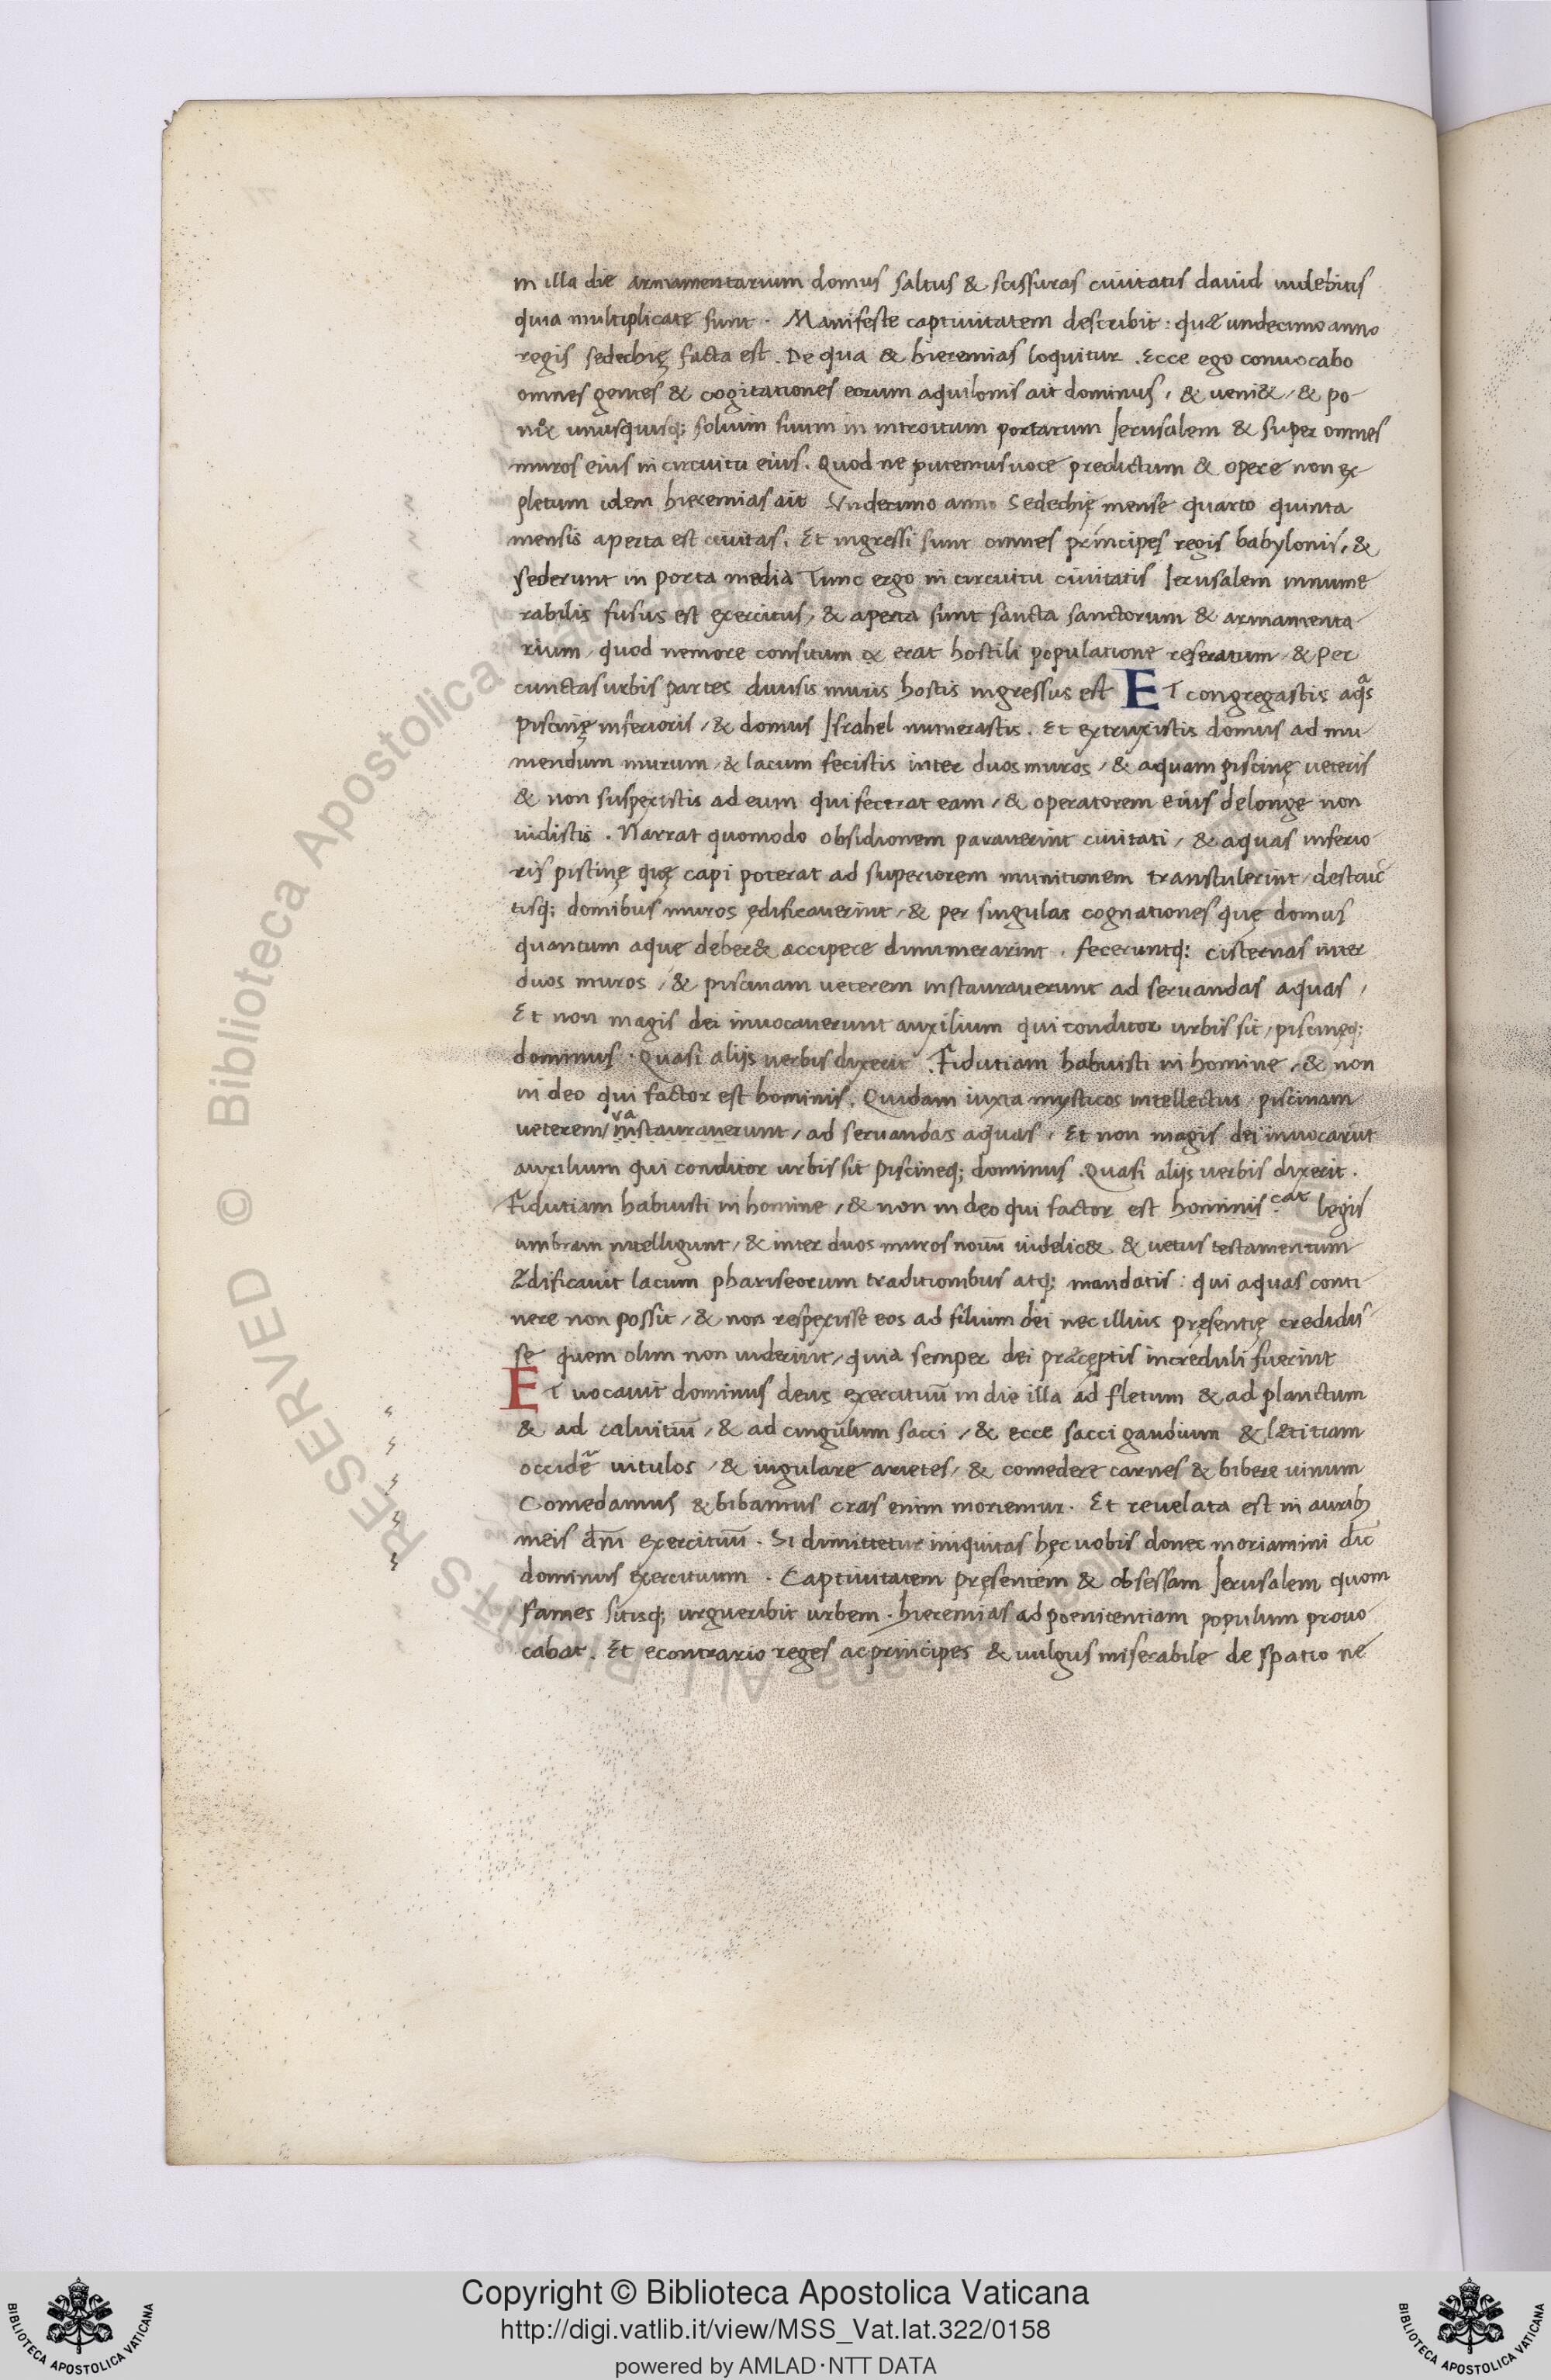 in illa die armamentarium domus saltus & scissuras ciuitatis dauid uidebitis
quia multiplicatę sunt . Manifeste captiuitatem describit : quæ undecimo anno
regis sedechię facta est . De qua & hieremias loquitur . Ecce ego conuocabo
omnes gentes & cogitationes eorum aquilonis ait dominus , & ueni& / & po
n& unusquisq; solium suum in introitum portarum Ierusalem & super omnes
muros eius in circuitu eius . Quod ne putemus uoce predictum & opere non ex
pletum idem hieremias ait Vndecimo anno Sedechię mense quarto quinta
mensis aperta est ciuitas . Et ingressi sunt omnes principes regis babylonis , &
sederunt in porta media Tunc ergo in circuitu ciuitatis Ierusalem innume
rabilis fusus est exercitus / & aperta sunt sancta sanctorum & armamenta
rium / quod nemore consitum erat hostili populatione reseratum / & per
cunctas urbis partes diuisis muris hostis ingressus est ET congregastis aq̃s
piscinę inferioris / & domus Israhel numerastis . Et extruxistis domus ad mu
niendum murum / & lacum fecistis inter duos muros / & aquam piscinę ueteris
& non suspexistis ad eum qui fecerat eam / & operatorem eius delonge non
uidistis . Narrat quomodo obsidionem parauerint ciuitati / & aquas inferio
ris piscinę quę capi poterat ad superiorem munitionem transtulerint / destruc
tisq; domibus muros ędificauerint / & per singulas cognationes quę domus
quantum aquę deber& accipere dinumerarint , feceruntq; cisternas inter
duos muros / & piscinam ueterem instaurauerunt ad seruandas aquas ,
Et non magis dei inuocauerunt auxilium qui conditor urbis sit / piscinęq;
dominus . Quasi aliis uerbis dixerit . Fidutiam habuisti in homine , & non
in deo qui factor est hominis . Quidam iuxta mysticos intellectus piscinam
ueterem / instaurauerunt / ad seruandas aquas , Et non magis dei inuocarũt
auxilium qui conditor urbis sit piscineq; dominus . Quasi aliis uerbis dixerit .
Fidutiam habuisti in homine / & non in deo qui factor est hominis . cat legis
umbram intelligunt / & inter duos muros nouũ uidelic& & uetus testamentum
Ædificauit lacum phariseorum traditionibus atq; mandatis : qui aquas conti
nere non possit / & non respexisse eos ad filium dei nec illius pręsentię credidis
se quem olim non uiderint / quia semper dei pręceptis increduli fuerint
ET uocauit dominus deus exercituũ in die illa ad fletum & ad planctum
& ad caluitiũ / & ad cingulum sacci / & ecce sacci gaudium & lætitiam
occidẽ uitulos / & iugulare arietes / & comedere carnes & bibere uinum
Comedamus & bibamus cras enim moriemur . Et reuelata est in aurib;
meis dñi exercituũ . Si dimittetur iniquitas hęc uobis donec moriamini dic̃
dominus exercituum . Captiuitatem pręsentem & obsessam Ierusalem quom
fames sitisq; urgueribit urbem . hieremias ad poenitentiam populum prouo
cabat . Et econtrario reges ac principes & uulgus miserabile de spatio ne
Copyright © Biblioteca Apostolica Vaticana
http://digi.vatlib.it/view/MSS_Vat.lat.322/0158
powered by AMLAD·NTT DATA